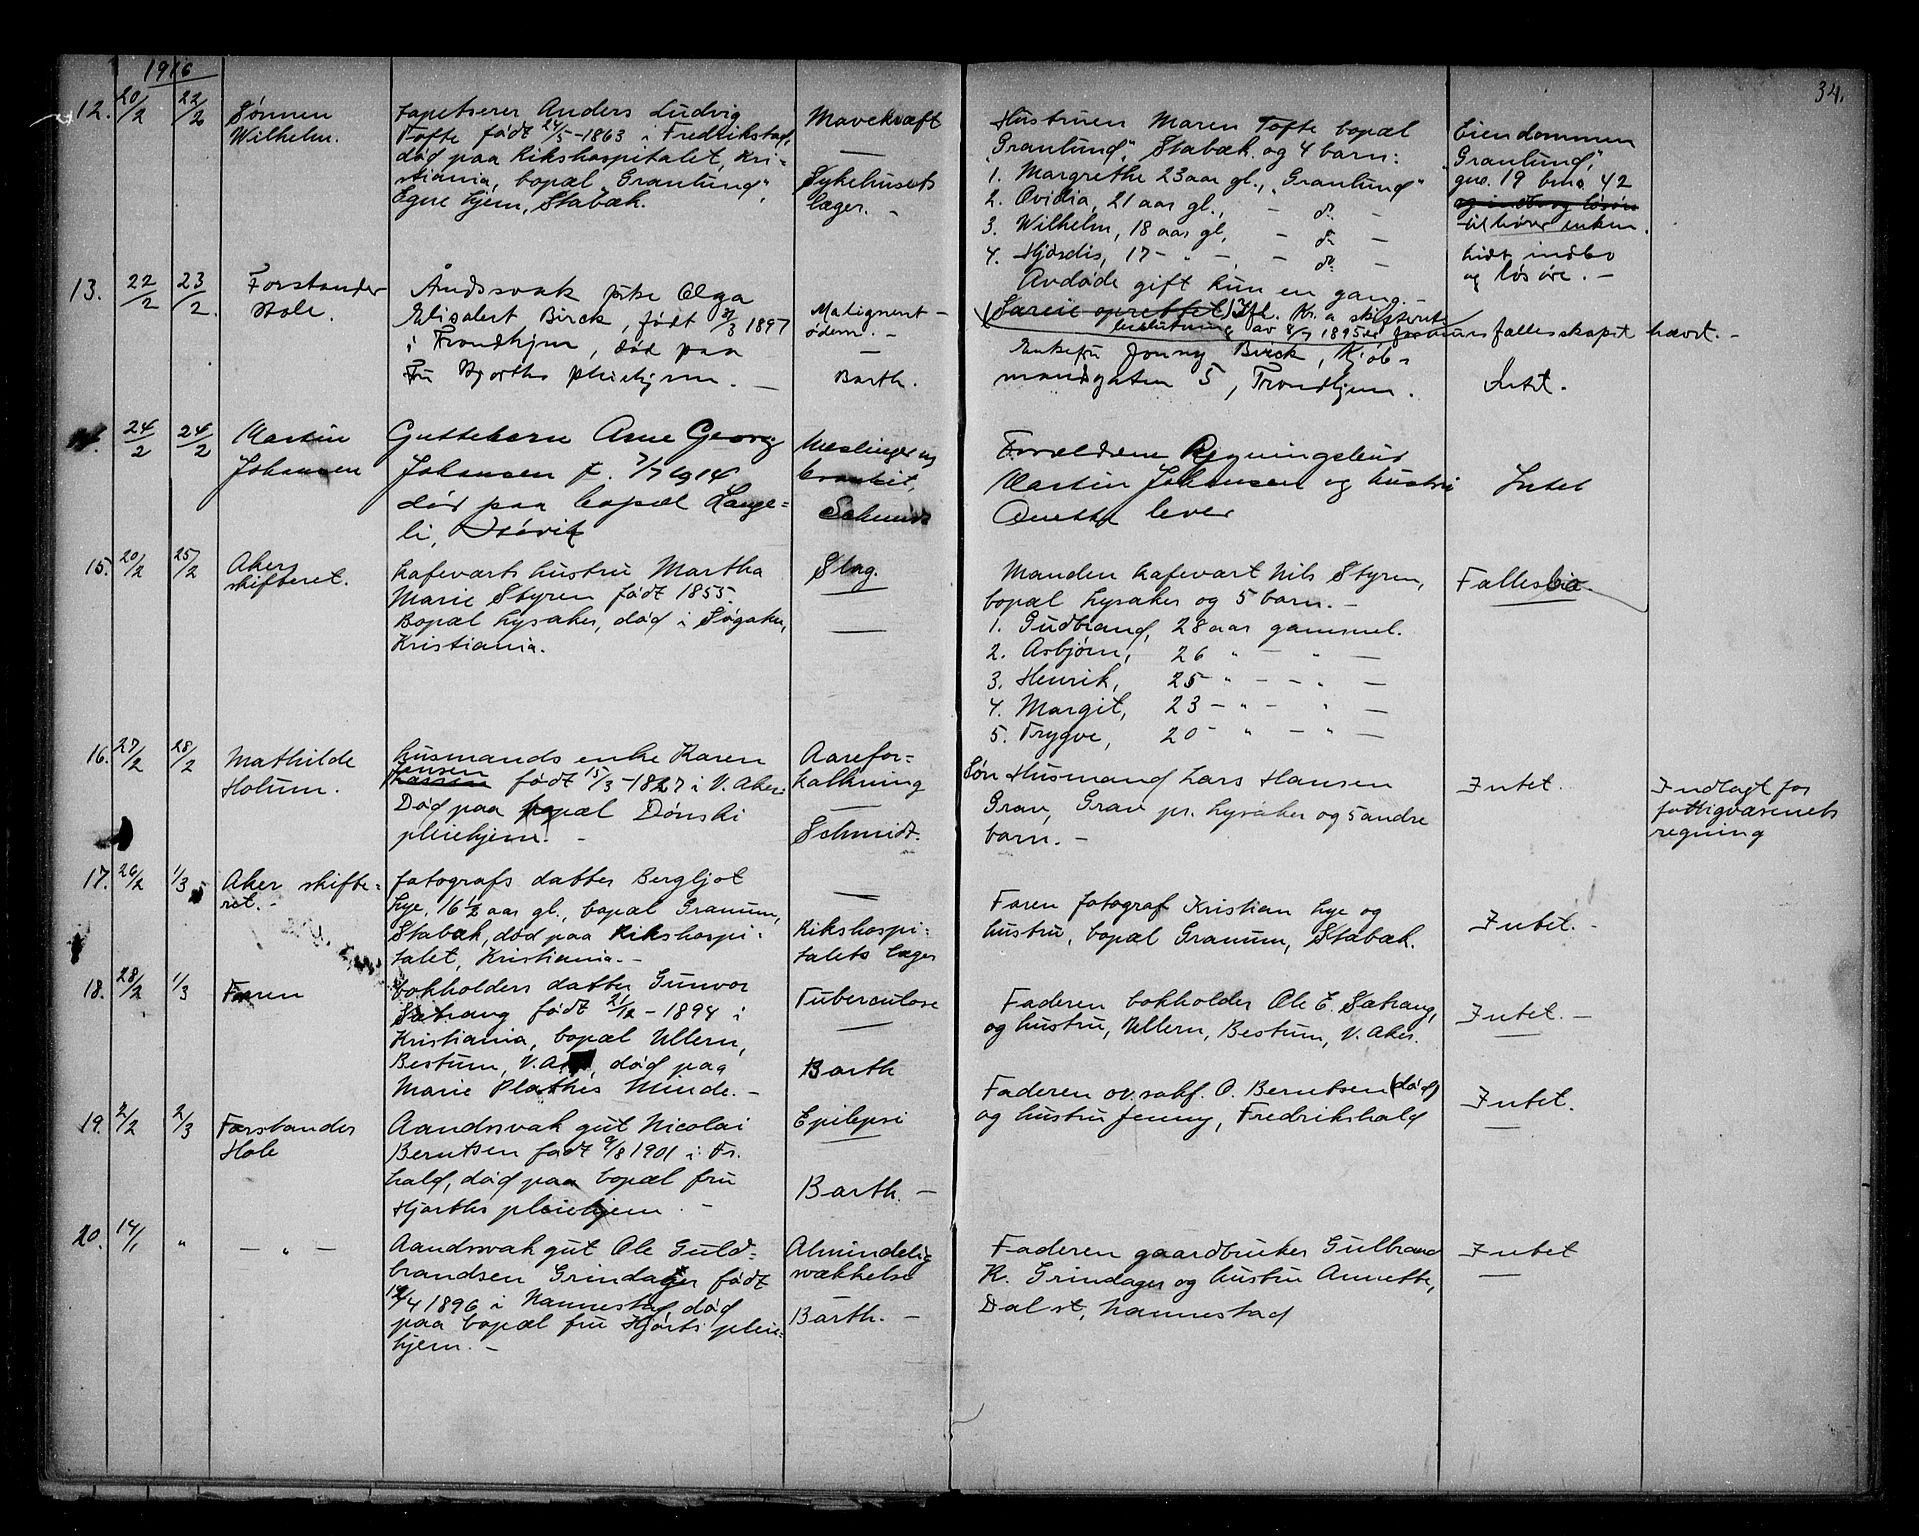 1916
34.
12. 20/2 22/2 Sønnen
Wilhelm.
Tapetserer Anders Ludvig
Tofte født 24/5-1863 i Fredrikstad,
død paa Rikshospitalet, Kri-
stiania, bopæl "Granlund",
Egne hjem, Stabæk.
Mavekræft
—
Sykehusets
læger. -
Hustruen Maren Tofte bopæl
"Granlund", Stabæk og 4 barn:
1. Margrethe 23 aar gl., "Granlund"
2. Ovidia, 21 aar gl., - do -
3. Wilhelm, 18 aar gl, - do -
4. Hjørdis, 17 - " -, - do -
Avdøde gift kun en gang. -
Eiendommen
"Granlund",
gno. 19 bno 42
og indbo og løsøre
tilhører enken.
Lidt indbo
og løsøre. -
13. 22/2 23/2 Forstander
Hole.
Åndssvak pike Olga
Elisabert Birck, født 31/3 1897
i Trondhjem, død paa
Fru Hjorths pleiehjem. -
Malignent -
ødem. -
—
Barth.
av 8/7 1895 fællesskapet hævet. -
Enkefru Jonny Birck, Kjøb-
mandsgaten 5, Trondhjem.
Intet.
14. 24/2 24/2 Martin
Johansen
Guttebarn Arne Georg
Johansen f. 7/7 1914
død paa bopæl Lange-
li,
Meslinger og
bronkit,
Schmidt
Forældrene
Martin Johansen og hustru
Anette lever
Intet
15. 20/2 25/2 Aker
skifteret.
Kafeværts hustru Martha
Marie Styren født 1855.
Bopæl Lysaker, død i Søgaten,
Kristiania.
Slag.
—
Manden kafevært Nils Styren,
bopæl Lysaker og 5 barn. -
1. Gudbrand, 28 aar gammel.
2. Asbjørn, 26 " - " -
3. Henrik, 25 - " - - " -
4. Margit, 23 - " - " -
5. Trygve, 20 - " - " -
Fællesbo.
16. 27/2 28/2 Mathilde
Holum.
Husmands enke Karen
Jensen
Hansen født 15/3-1827 i V. Aker.
Død paa bopæl Dønski
pleiehjem. -
Aarefor-
kalkning
—
Schmidt.
Søn Husmand Lars Hansen
Grav, Grav pr. Lysaker og 5 andre
barn. -
Intet.
Indlagt for
fattigvæsenets
regning
17. 26/2 1/3 Aker skifte-
ret. -
Fotografs datter Bergljot
Lye, 16 1/2 aar gl., bopæl Granum,
Stabæk, død paa Rikshospi-
talet, Kristiania. -
—
Rikshospi-
talets læger
Faren fotograf Kristian Lye og
hustru, bopæl Granum, Stabæk.
Intet. -
18. 28/2 1/3 Faren
Bokholders datter Gunvor
Sætrang født 21/12-1894 i
Kristiania, bopæl Ullern,
Bestum, V. Aker, død paa
Marie Plathes Minde. -
Tuberculose
—
Barth
Faderen bokholder Ole E. Sætrang,
og hustru, Ullern, Bestum, V. Aker.
Intet. -
19. 2/2 2/3 Forstander
Hole
Aandssvak gut Nicolai
Berntsen født 9/8 1901 i Fr.
hald, død paa bopæl fru
Hjorths pleiehjem. -
Epilepsi
—
Barth. -
Faderen ov.sakf. O. Berntsen (død)
og hustru Jenny, Fredrikshald
Intet.
20. 14/1 " - " -
Aandssvak gut Ole Guld-
brandsen Grindager født
12/4 1896 i Nannestad, død
paa bopæl fru Hjorts pleie-
hjem. -
Almindelig
svækkelse
Barth. -
Faderen gaardbruker Gulbrand
K. Grindager og hustru Annette,
Dal st, Nannestad
Intet
—